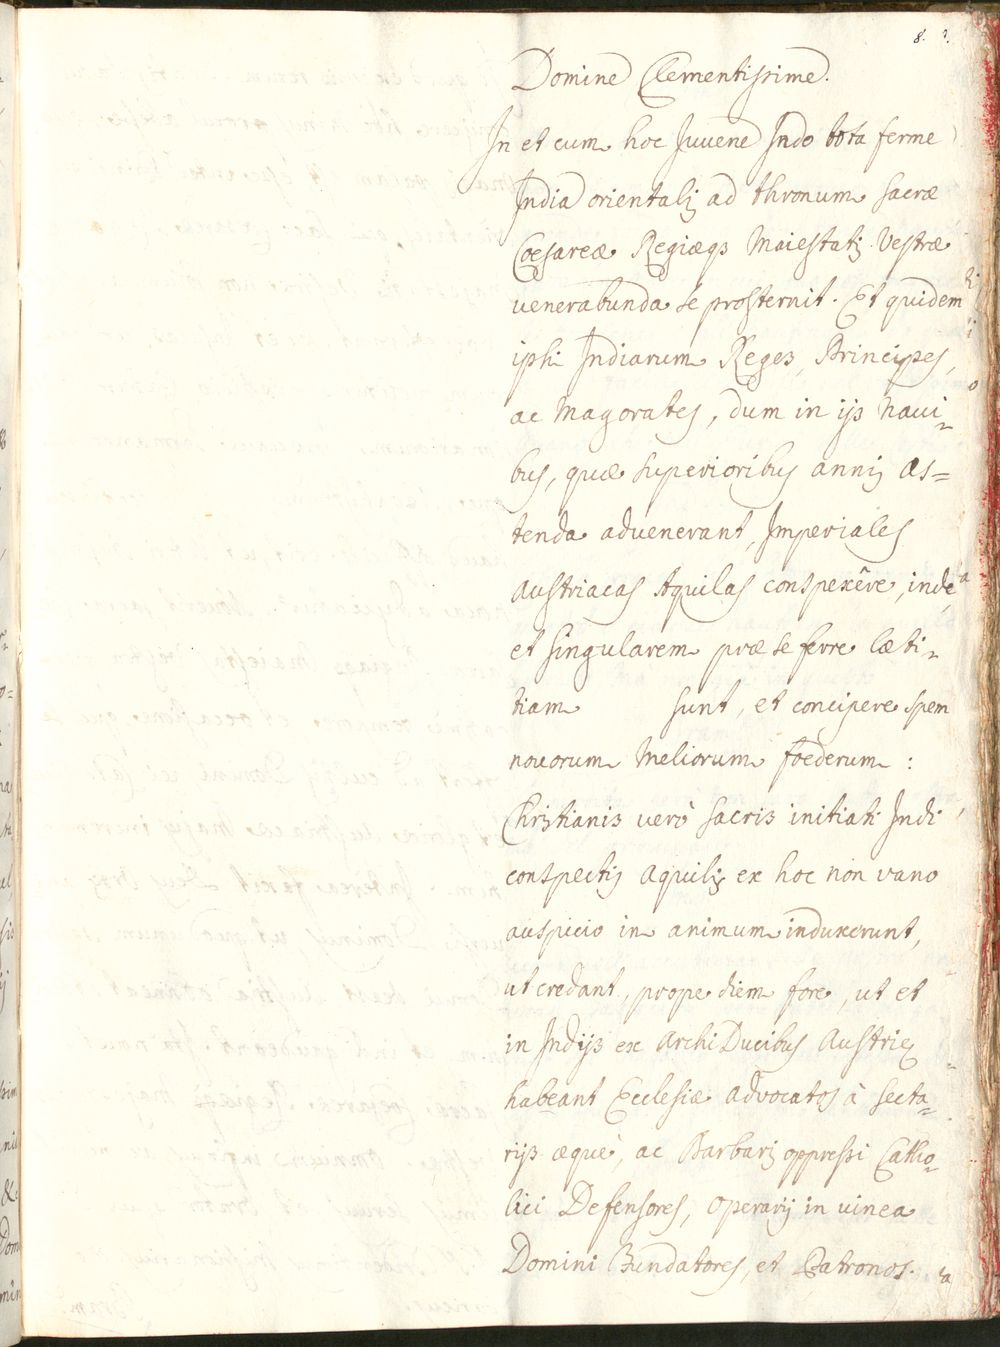 Domine Clementissime.
In et cum hoc Juuene Indo tota ferme
India orientalis ad thronum sacræ
Cæsareæ Regiæq3 Maiestatis Vestræ
venerabunda se prosternit. Et quidem
ipsi Indiarum Reges, Principes,
ac Magorates, dum in ijs Naui-
bus, quæ superioribus annis Os=
tenda aduenerant, Imperiales
Austriacas Aquilas conspexêre, inde
et singularem præ se ferre læti-
tiam sunt, et concipere spem
nouorum Meliorum foederum :
Christianis verò sacris initiati Indi
conspectis Aquilis ex hoc non vano
auspicio in animum induxerunt,
ut credant, prope diem fore, ut et
in Indijs ex ArchiDucibus Austriæ
habeant Ecclesiæ Advocatos à secta-
rijs æquè, ac Barbaris oppressi Catho-
lici Defensores, Operarij in vinea
Domini Fundatores, et Patronos.